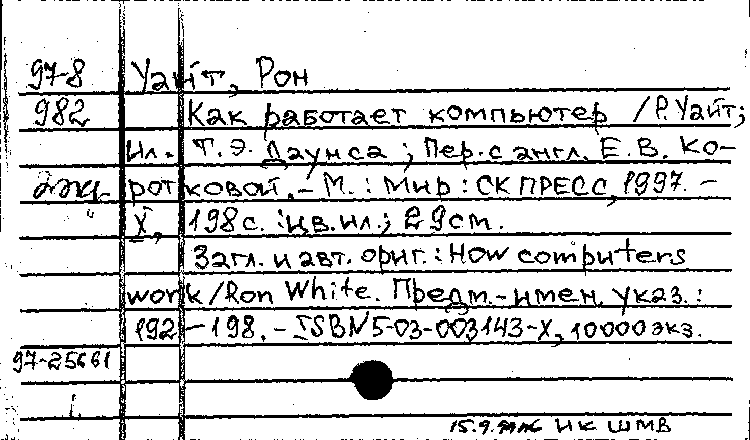 97-8 Уайт, Рон
982 Как работает компьютер / Р. Уайт;
Ил. Т. Э. Даунса ; Пер. с англ. Е. В. Ко-
2 экз. ротковой. – М. : Мир : СК ПРЕСС, 1997. –
X, 198 с. : цв. ил.; 29 см.
Загл. и авт. ориг.: How computers
work / Ron White. Предм.-имен. указ.:
192 – 198. – ISBN 5-03-003143-X, 10000 экз.
97-25661
i.
15.9. НК ШМВ